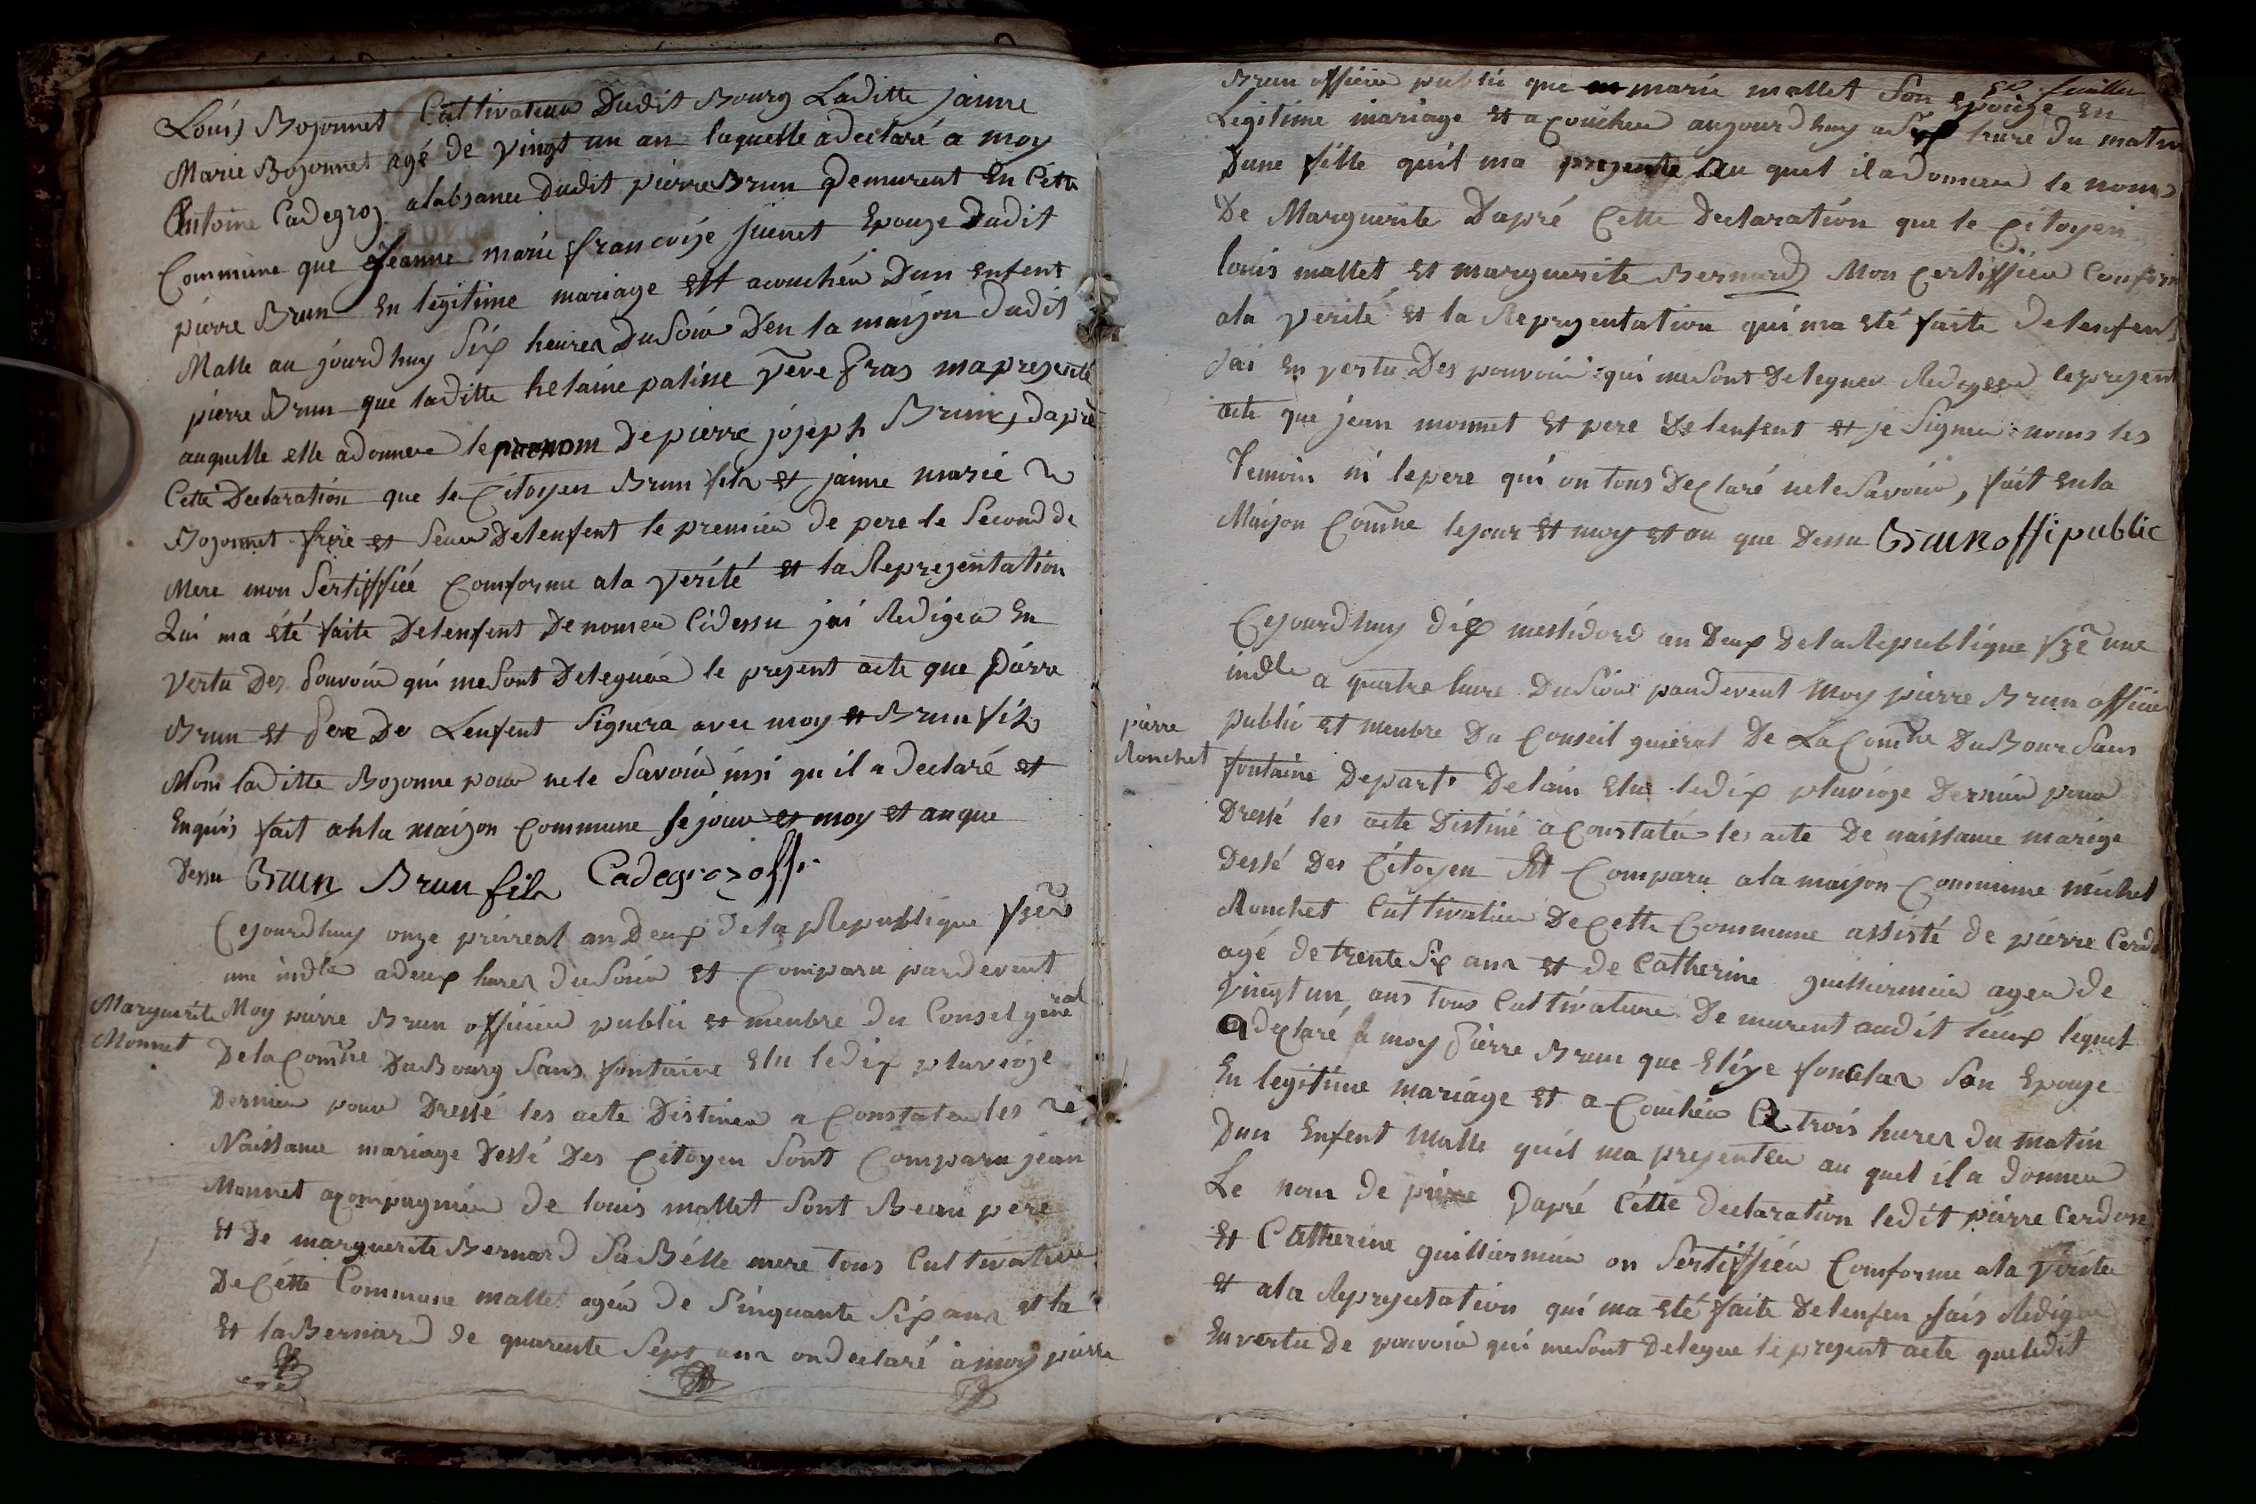 Louis Bozonnet Cultivateur Dudit Bourg Laditte janne
Marie Bozonnet agé de vingt un an laquelle a declaré a moy
Antoine Cadegroz alabsance dudit pierre Brun Demurent En Cette
Commune que Jeanne marie françoize juenet Epouze Dudit
pierre Brun En legitime mariage Ett acouchéu Dun Enfent
Malle au jourdhuy Six heures Du Soir Den la maizon dudit
pierre Brun que laditte helaine patine veve Gras ma prezenté
auquelle elle adonnere le prenom De pierre jozeph Brun, dapré
Cette Declaration que le Citoyen Brun fils et janne marie
Bozonnet frere et Seur Delenfent le premier de pere le Second de
Mere mon Sertiffié Comforme ala verité et la Reprezentation
Qui ma été faite Delenfent Denomer Cidessu jai Rediger En
vertu Des Pouvoir qui me Sont Delegué le prezent acte que Pierre
Brun et Pere De Lenfent Signera avec moy et Brun fils
Mon laditte Bozonne pour nele Savoir insi qu il a declaré et
Enquis fait ahla maizon Commune lejour et moy et anque
Dessu Brun Brun fils Cadegroz off.
Cejourdhuy onze prereal an Deux Dela Republique fze
une indle adeux hures du Soir Et Comparu pardevent
Marguerite Monnet
Moy pierre Brun officier public et menbre du Consel general
Dela Comne Du Bourg Sans fontaine Elu ledix pluvioze
Dernier pour Dressé les acte Distiner a Constater les
Naissance mariage Dessé Des Citoyen Sont Comparu jean
Monnet acompagnier de louis mallet Sont Beau pere
Et De marguerite Bernard Sa Bélle mere tous Cultivature
De Cétte Commune mallet agéu de Sinquante Six ans et la
Et la Bernard de quarente Sept ans on declaré a moy pierre
50 feuillet
Brun officier public que marie mallet Son epouze En
Legitime mariage Et acoucheu aujourdhuy a Six hure Du matin
Dune fille quil ma prezente au quel il adonneu le noms
De Marguerite Dapré Cette Declaration que le Citoyen
louis mallet Et marguerite Bernard Mon Certiffieu Confor
ala verité et la Reprezentation qui ma été faite Delenfent
jai En vertu Des pouvoir qui me Sont Deleguer Redigeer le prezent
acte que jean monnet Et pere De lenfent et je Signer nonis les
Temoin ni le pere qui on tous Declaré nele Savoir, fait En la
Maizon Comne lejour Et moy Et an que Dessu Brun offi public
Cejourdhuy dix messidord an Deux Dela Republique fze une
indle a quatre hure Du Soir pandevent Moy pierre Brun officier
pierre Ronchet
public et menbre Du Conseil guieral De La Comne Du Bour Sans
fontaine Depart. Delain Elu ledix pluvioze Dernier pour
Dressé les acte Distiné a Constater les acte De naissance marige
Dessé Des Citoyen Et Comparu ala maizon Commune michel
Ronchet Cultivatieu De Cette Commune assisté de pierre Cerd
agé de trente Six ans et de Catherine guilliermin ageu de
vingt un ans tous Cultivature De murent audit lieux lequel
a declaré a moy Pierre Brun que Elize fonclar Son Epouze
En legitime mariage Et a Couchéu a trois hures du matin
Dun Enfent Malle quil ma prezenteu au quel il a donneu
Le nom de pierre Dapré Cétte declaration ledit pierre Cerdon
Et Catherine guilliermin on Sertiffiéu Comforme ala Veriteu
et ala Reprezentation qui ma eté faite Delenfen jais Rediger
En vertu De pouvoir qui me Sont Delegue le prezent acte que ledit